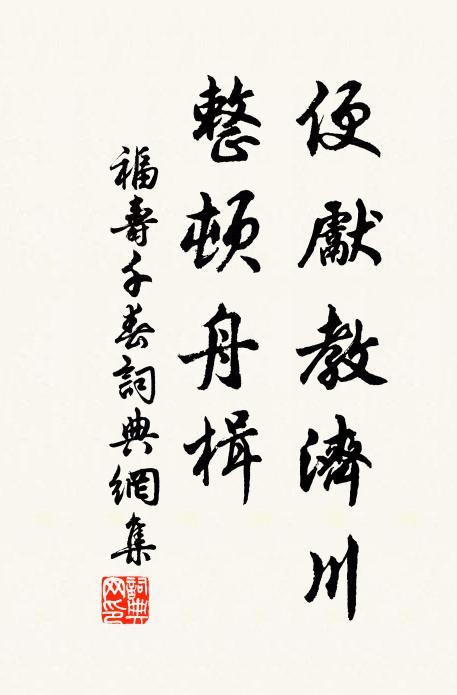 便獻教濟川
整頓舟楫
福壽千春詞典網集
詞典网印